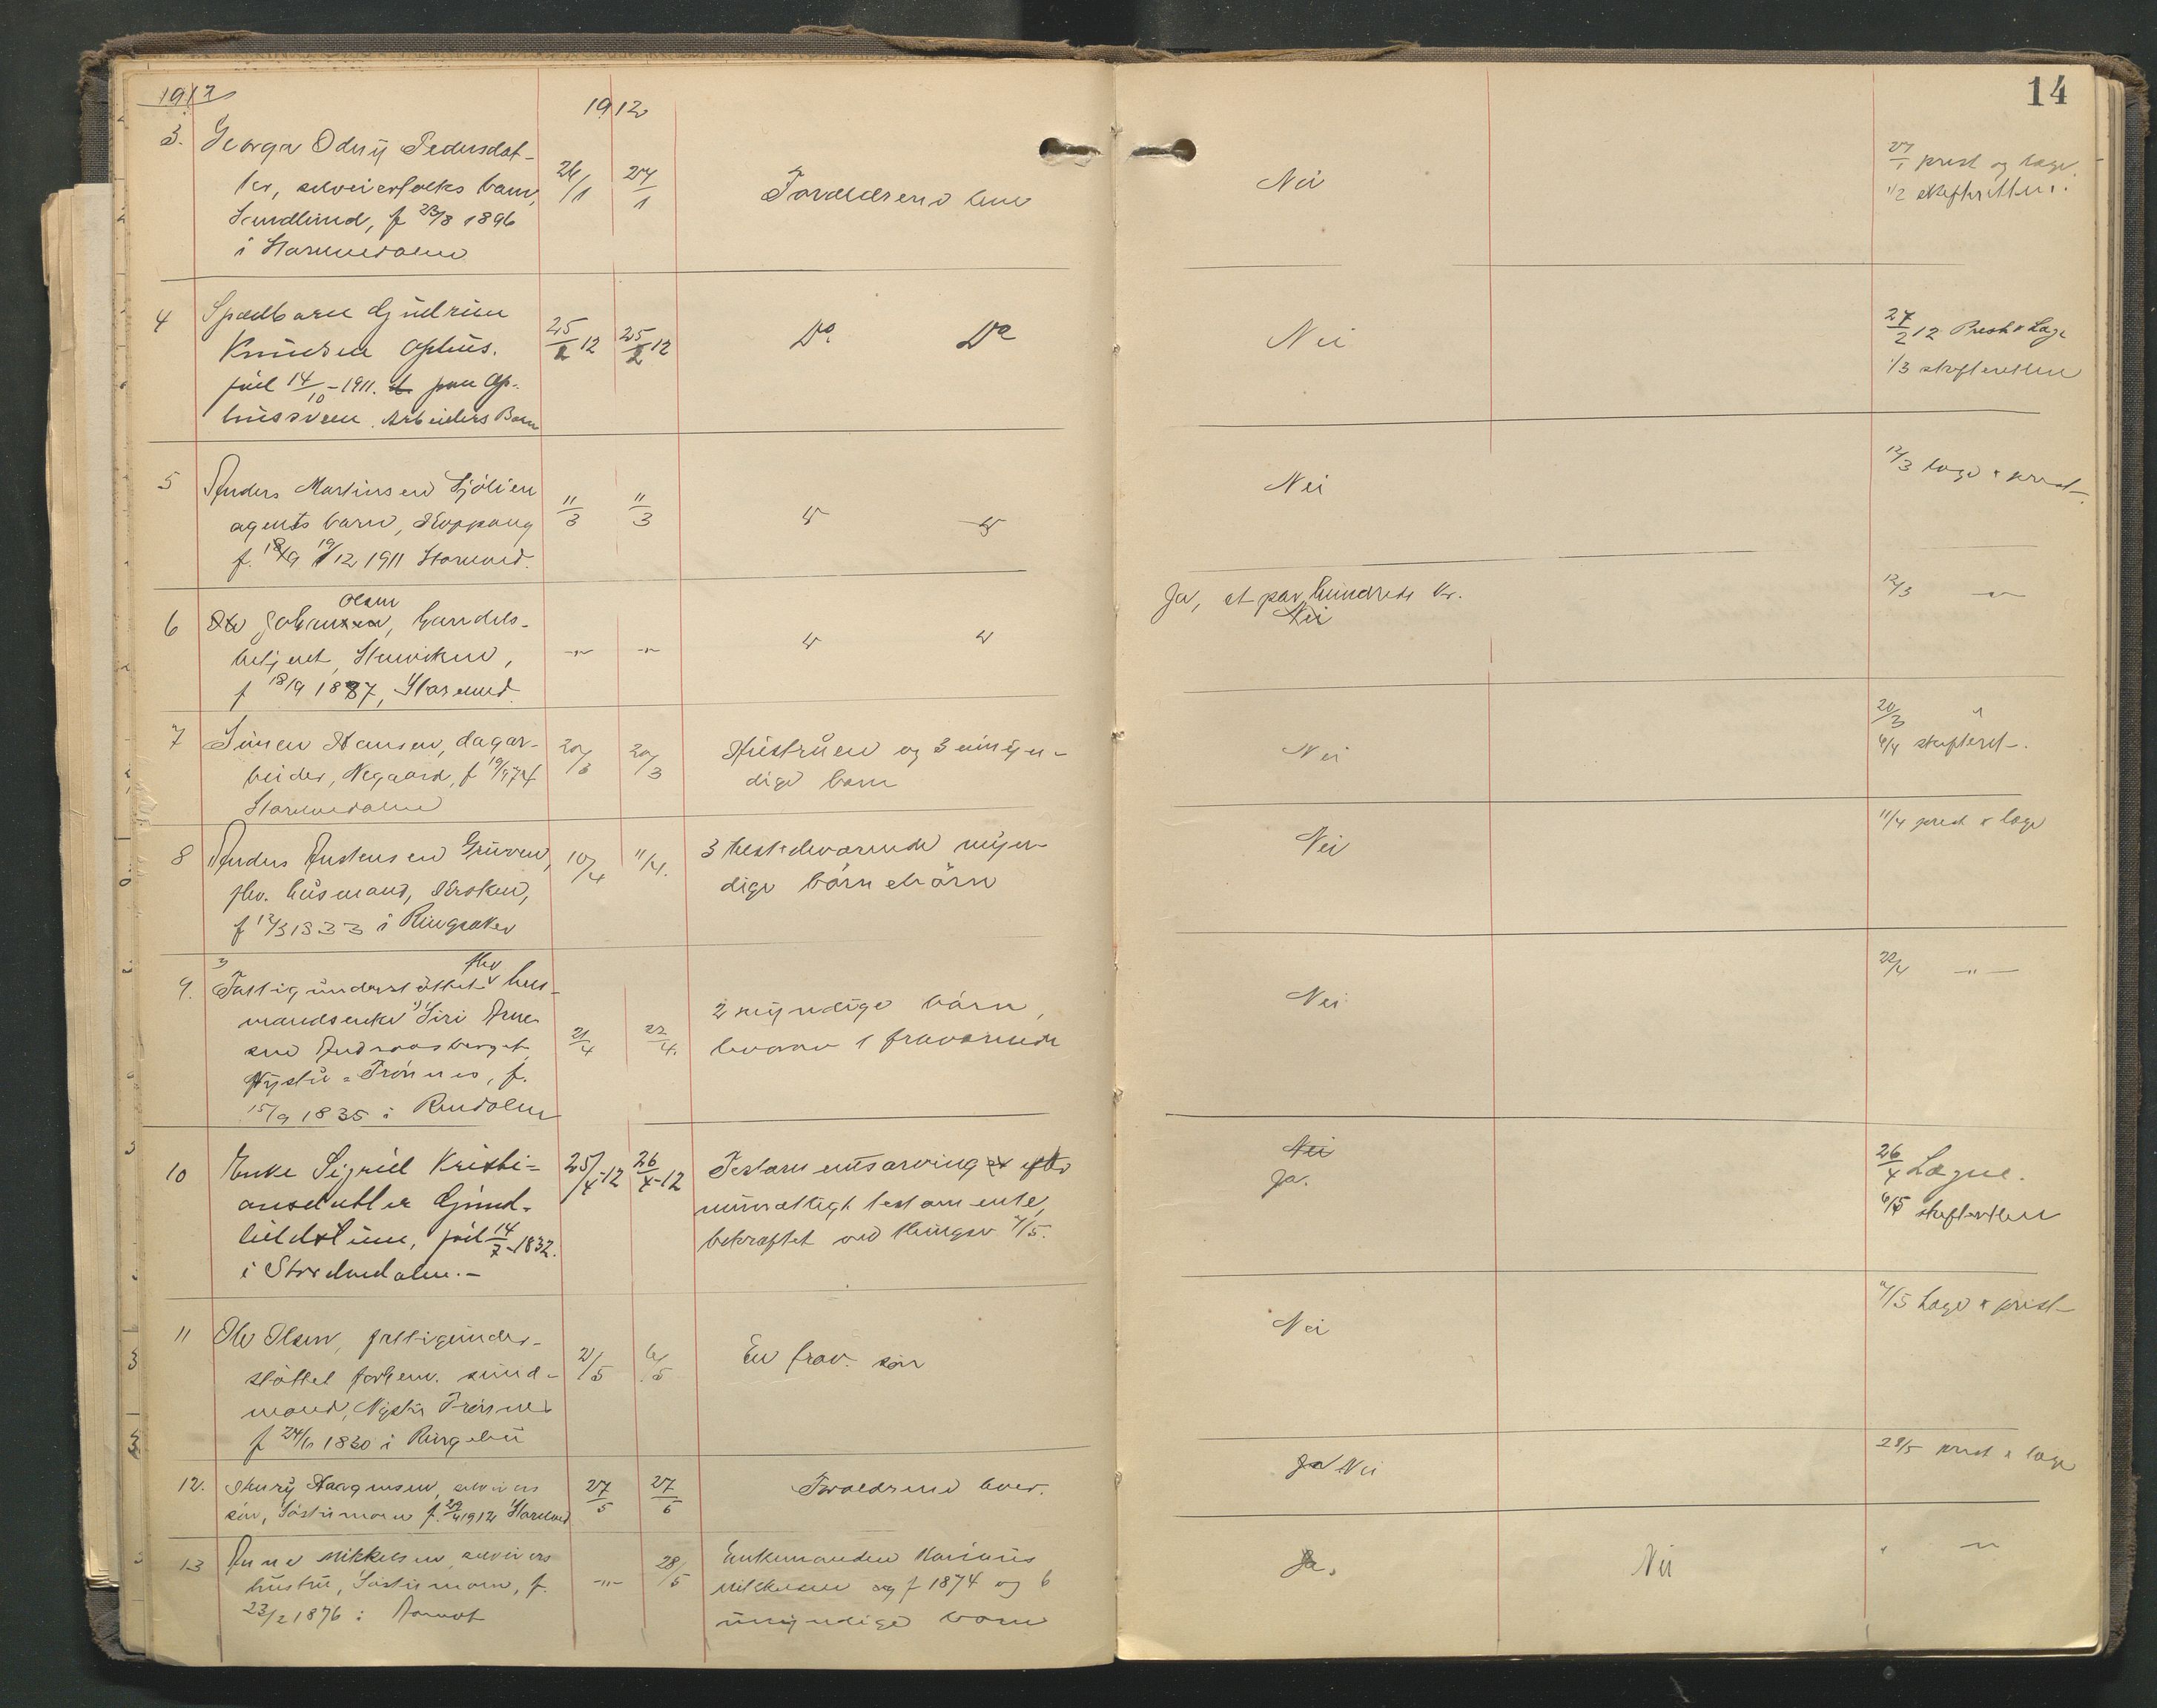 1912
1912
14
3. Georga Odny Pedersdat-
ter, selveierfolks barn,
Sundlund, f 23/8 1896
i Storelvedalen
26/1
27/1
Forældrene lever
Nei
27/1 prest og læge
1/2 skifteretten.
4 Spædbarn Gudrun
Knudsen Ophus.
født 14/10 - 1911. paa Op-
husøveien. Arbeiders Barn
25/2 12
25/2 12
Do Do
Nei
27/2 12 Prest & Læge
1/3 skifteretten
5 Anders Martinsen Sjølien
agents barn, Koppang
f. 19/12 1911 Storelved.
11/3
11/3
" "
Nei
12/3 læge & prest
6 Johan Olsen, handels-
betjent, Stenviken,
f 18/9 1887, Storelved
-"-
-"-
" "
Ja, et par hundrede kr.
Nei
12/3 -"-
7 Simen Hansen, dagar-
beider, Negaard, f 19/9 74
Storelvedalen
20/3
20/3
Hustruen og 3 umyn-
dige barn
Nei
20/3 "
4/4 skifteret.
8 Anders Austensen Gruven,
fhv. husmand,
f 12/3 1833 i Ringsaker
10/4
11/4.
3 tilstedeværende myn-
dige børnebørn
Nei
11/4 prest & læge
9. Fattigunderstøttet fhv hus-
mandsenke Siri Arne
sen Andreasberget
Nystu - Trønnes, f.
15/9 1835 i Rendalen
21/4
22/4.
2 myndige børn,
hvorav 1 fraværende
Nei
22/4 -"-
10 Enke Sigrid Kristi-
ansdatter Grind-
født 14/7 - 1832.
i Storelvedalen. -
25/4 -12
26/4 -12
Testamentsarving efter
testamente,
bekræftet ved
Nei
Ja.
26/4 Lægne.
6/5 skifteretten
11 Ole Olsen, fattigunder-
støttet forhenv.
mand, Nystu Trønnes
f 24/6 1830 i Ringebu
2/5
6/5
En frav. søn
Nei
7/5 Læge & prest
12. Haagensen, selveiers
søn, Søstumoen f. 29/4 1912 Storelved
27/5
27/5
Forældrene lever.
Ja Nei
28/5 prest & læge
13 Anne Mikkelsen selveiers
hustru, Søstumoen, f.
23/2 1876 i Aamot
-"-
28/5
Enkemanden Marinius
Mikkelsen f 1874 og 6
umyndige barn
Ja.
Nei
" -"-